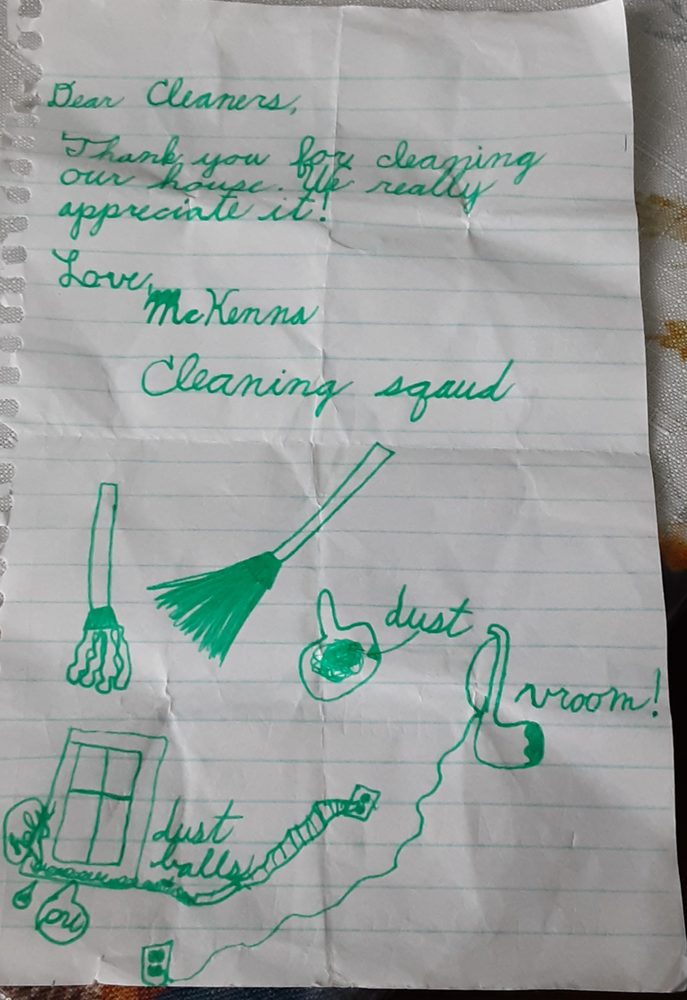 Dear Cleaners,
Thank you for cleaning
our house. We really
appreciate it!
Love,
McKenna
Cleaning sqaud
dust
vroom!
dust
balls